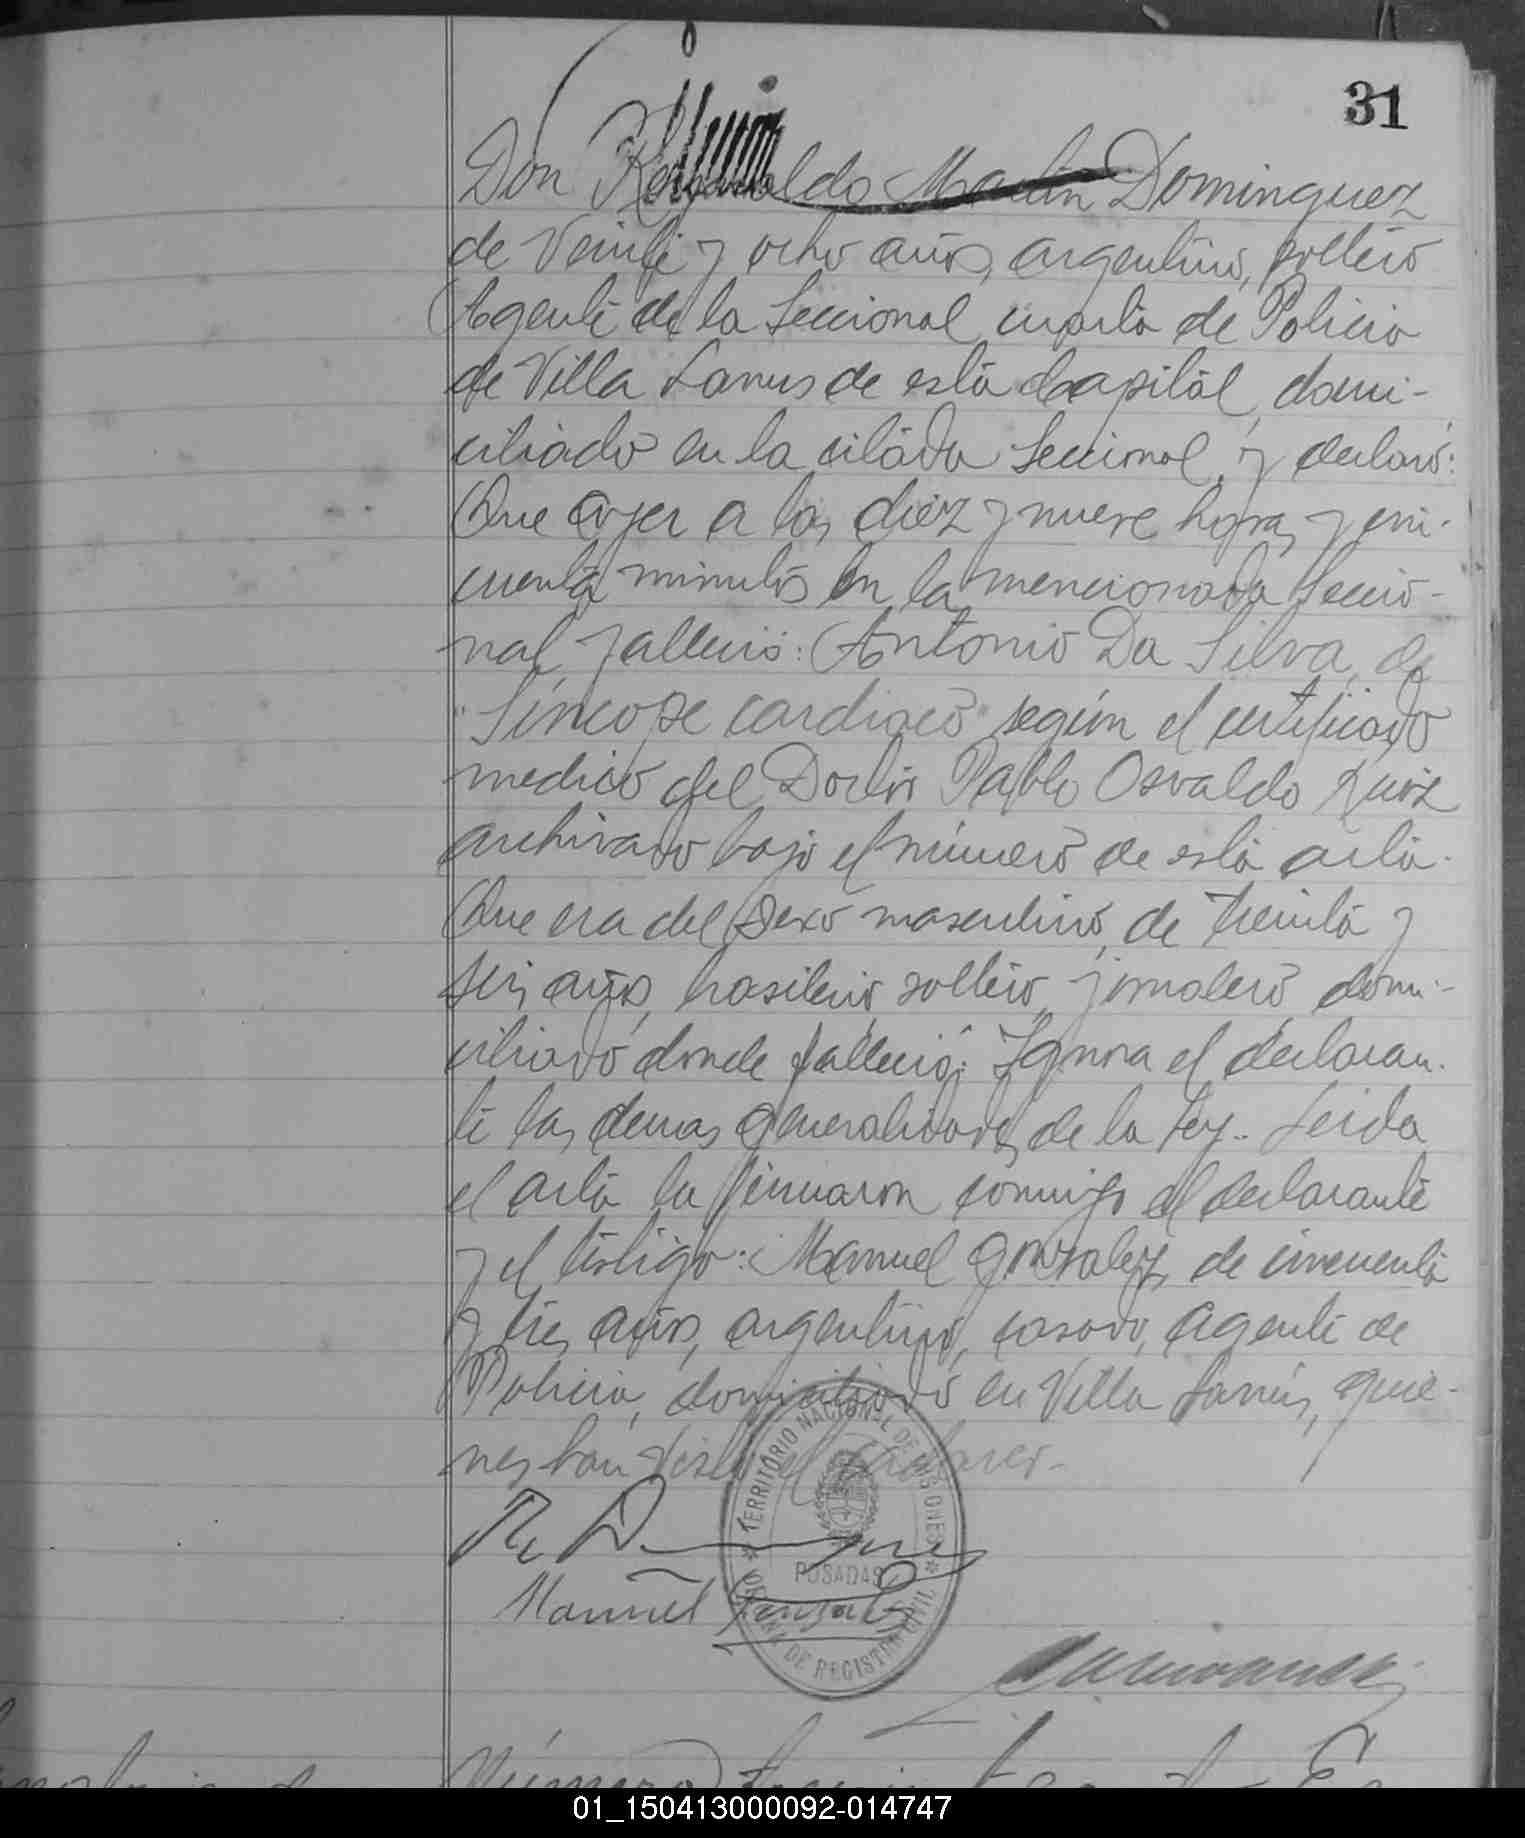 31
Don Reginaldo Martin Dominguez
de veinte y ocho años, argentino, soltero
Agente de la Seccional cuarta de Policia
de Villa Lanus de esta Capital, domi-
ciliado en la citada Seccional, y declaró:
Que ayer a las diez y nueve horas y cin-
cuenta minutos en la mencionada Seccio-
nal, falleció: Antonio Da Silva, de
"Síncope cardiaco" según el certificado
medico del Doctor Pablo Osvaldo Ruiz
archivado bajo el número de esta acta.
Que era del sexo masculino, de treinta y
seis años, brasilero, soltero, jornalero, domi-
ciliado donde falleció. Ignora el declaran-
te las demas generalidades de la Ley.- Leida
el acta la firmaron conmigo el declarante
y el testigo: Manuel Gonzalez, de cincuenta
y tres años, argentino, casado, agente de
Policia, domiciliado en Villa Lanús, quie-
nes han visto el cadaver.-
Manuel Gonzalez
TERRITORIO NACIONAL DE MISIONES
POSADAS
OFICINA DE REGISTRO CIVIL
Número treinta
01_150413000092-014747